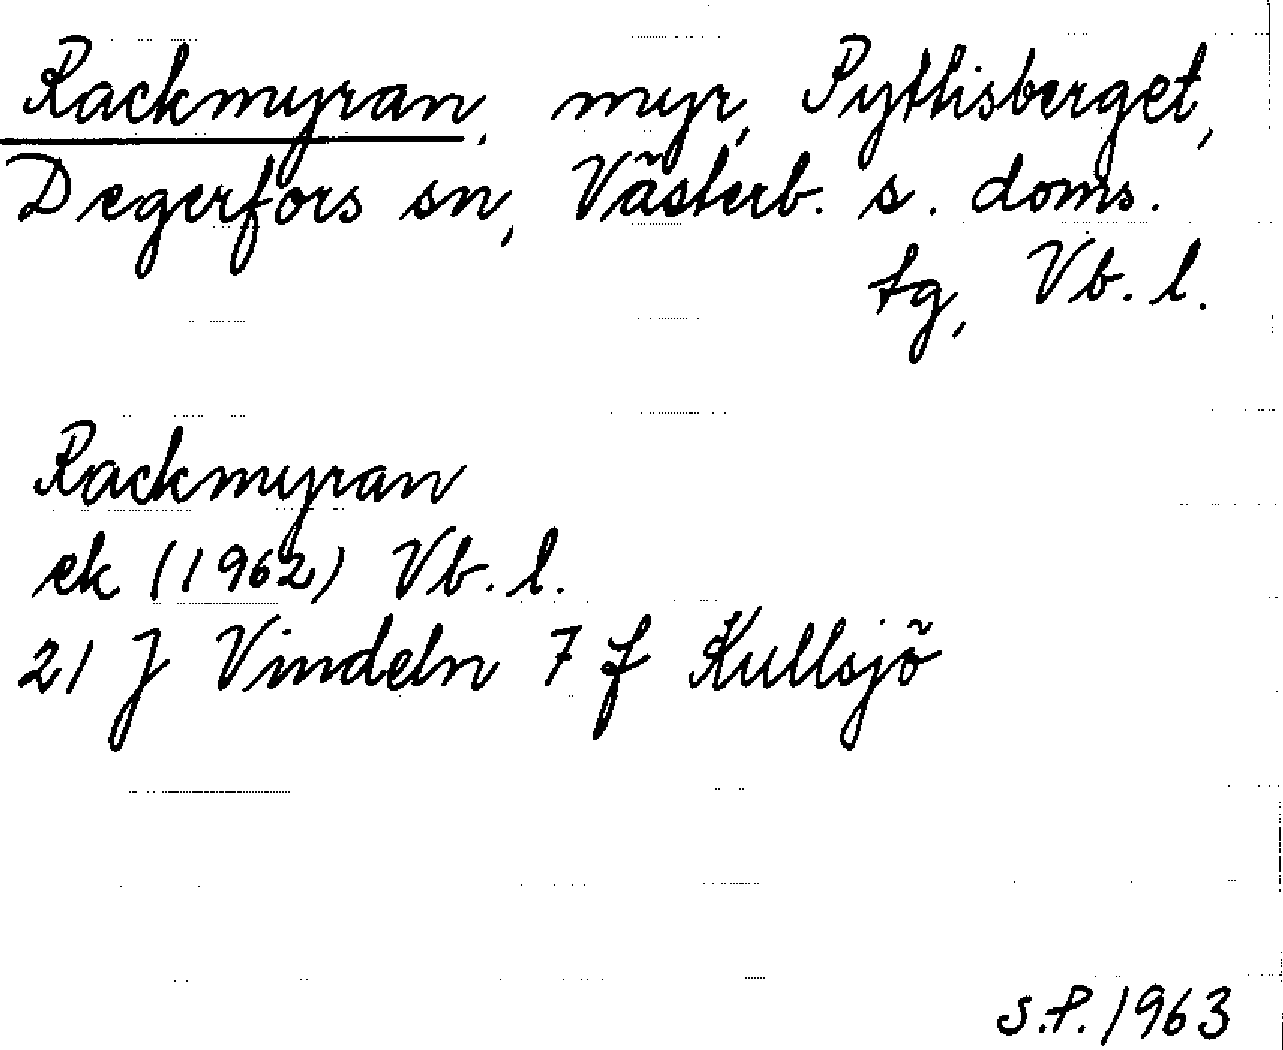 Rackmyran, myr, Pythisberget,
Degerfors sn, Västerb. s. doms.
tg, Vb. l.
Rackmyran
ek (1962) Vb. l.
21 J Vindeln 7 f Kullsjö
S.P. 1963